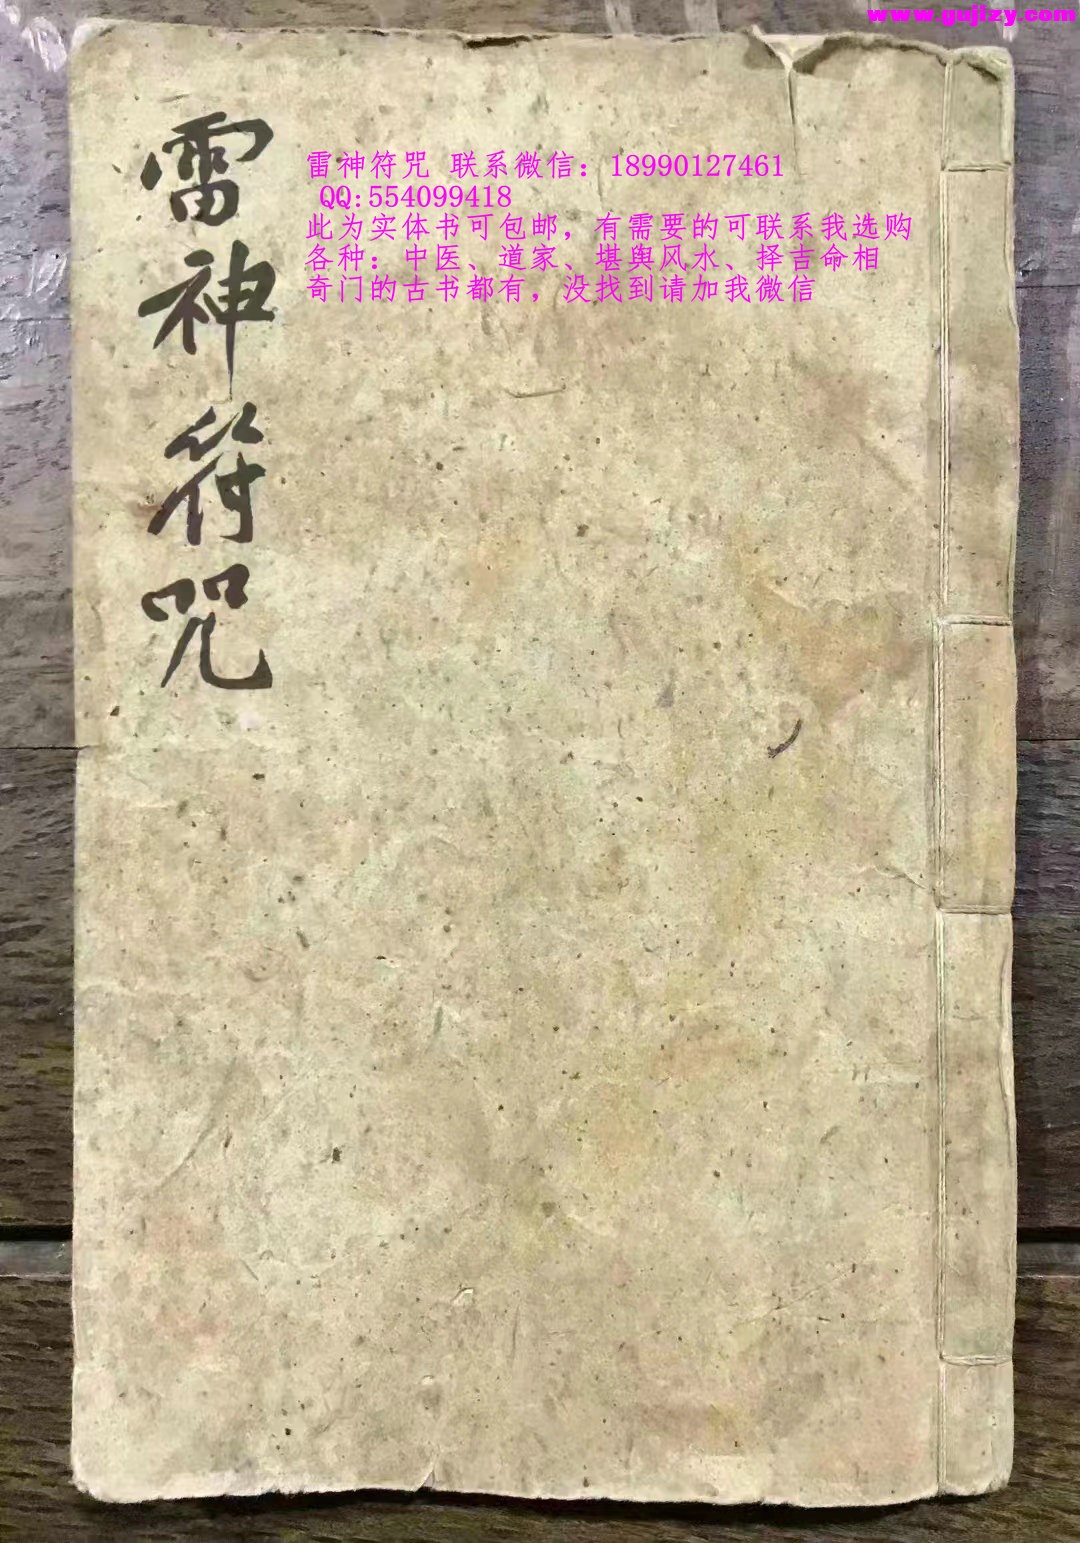 www.gujizy.com
雷神符咒 联系微信：18990127461
QQ:554099418
此为实体书可包邮，有需要的可联系我选购
各种：中医、道家、堪舆风水、择吉命相
奇门的古书都有，没找到请加我微信
雷神符咒